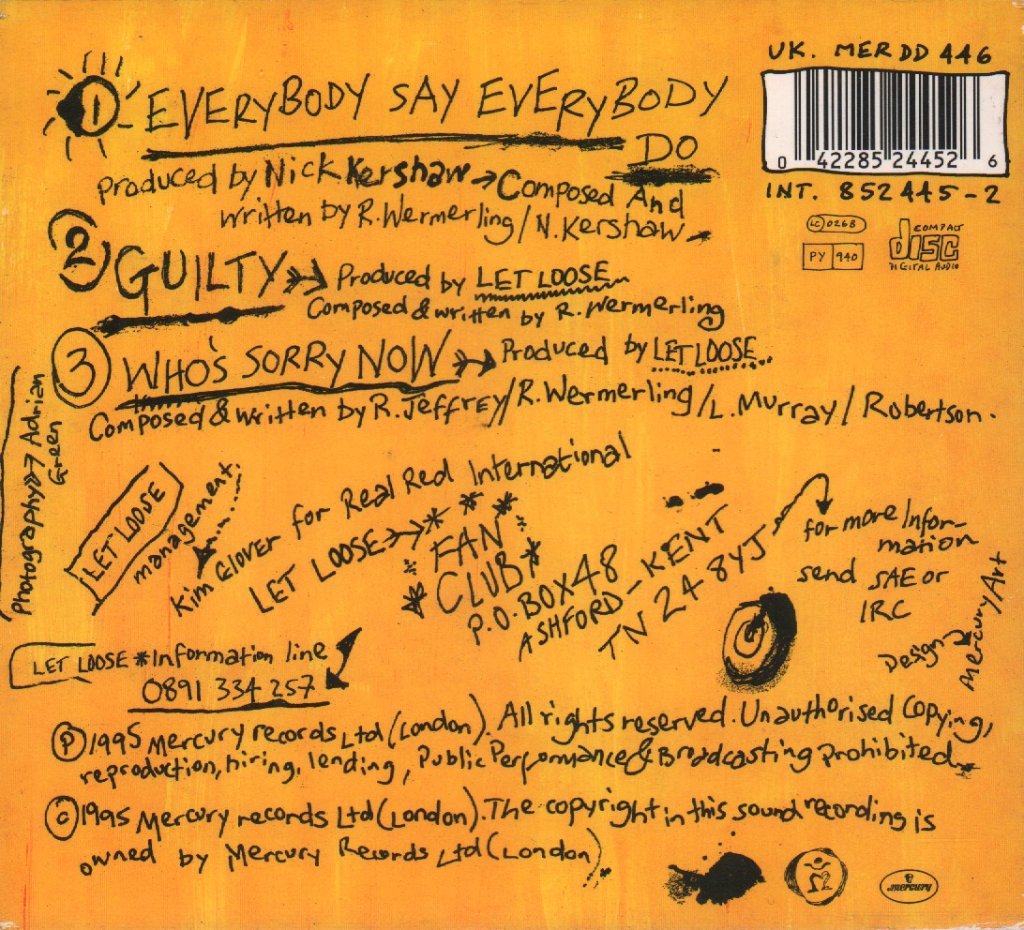 UK. MERDD 446
0 42285 24452 6
INT. 852 445-2
LC 0268
PY 940
COMPACT
disc
DIGITAL AUDIO
1 EVERYBODY SAY EVERYBODY
DO
produced by Nick Kershaw → Composed And
written by R.Wermerling/N.Kershaw
2 GUILTY → Produced by LET LOOSE
Composed & written by R. Wermerling
3 WHO'S SORRY NOW → Produced by LET LOOSE..
Composed & written by R. Jeffrey/R.Wermerling/L.Murray/Robertson.
Photography → Adrian
Green
LET LOOSE
management
Kim Glover for Real Red International
LET LOOSE → * * *
FAN
CLUB *
P.O.BOX 48
ASHFORD - KENT
TN24 8YJ
for more Infor-
mation
send SAE or
IRC
Design →
Mercury/Art
LET LOOSE * Information line
0891 334 257
℗ 1995 Mercury records Ltd (London). All rights reserved. Unauthorised Copying,
reproduction, hiring, lending, Public Performance & Broadcasting prohibited.
© 1995 Mercury records Ltd (London). The copyright in this sound recording is
owned by Mercury Records Ltd (London).
mercury